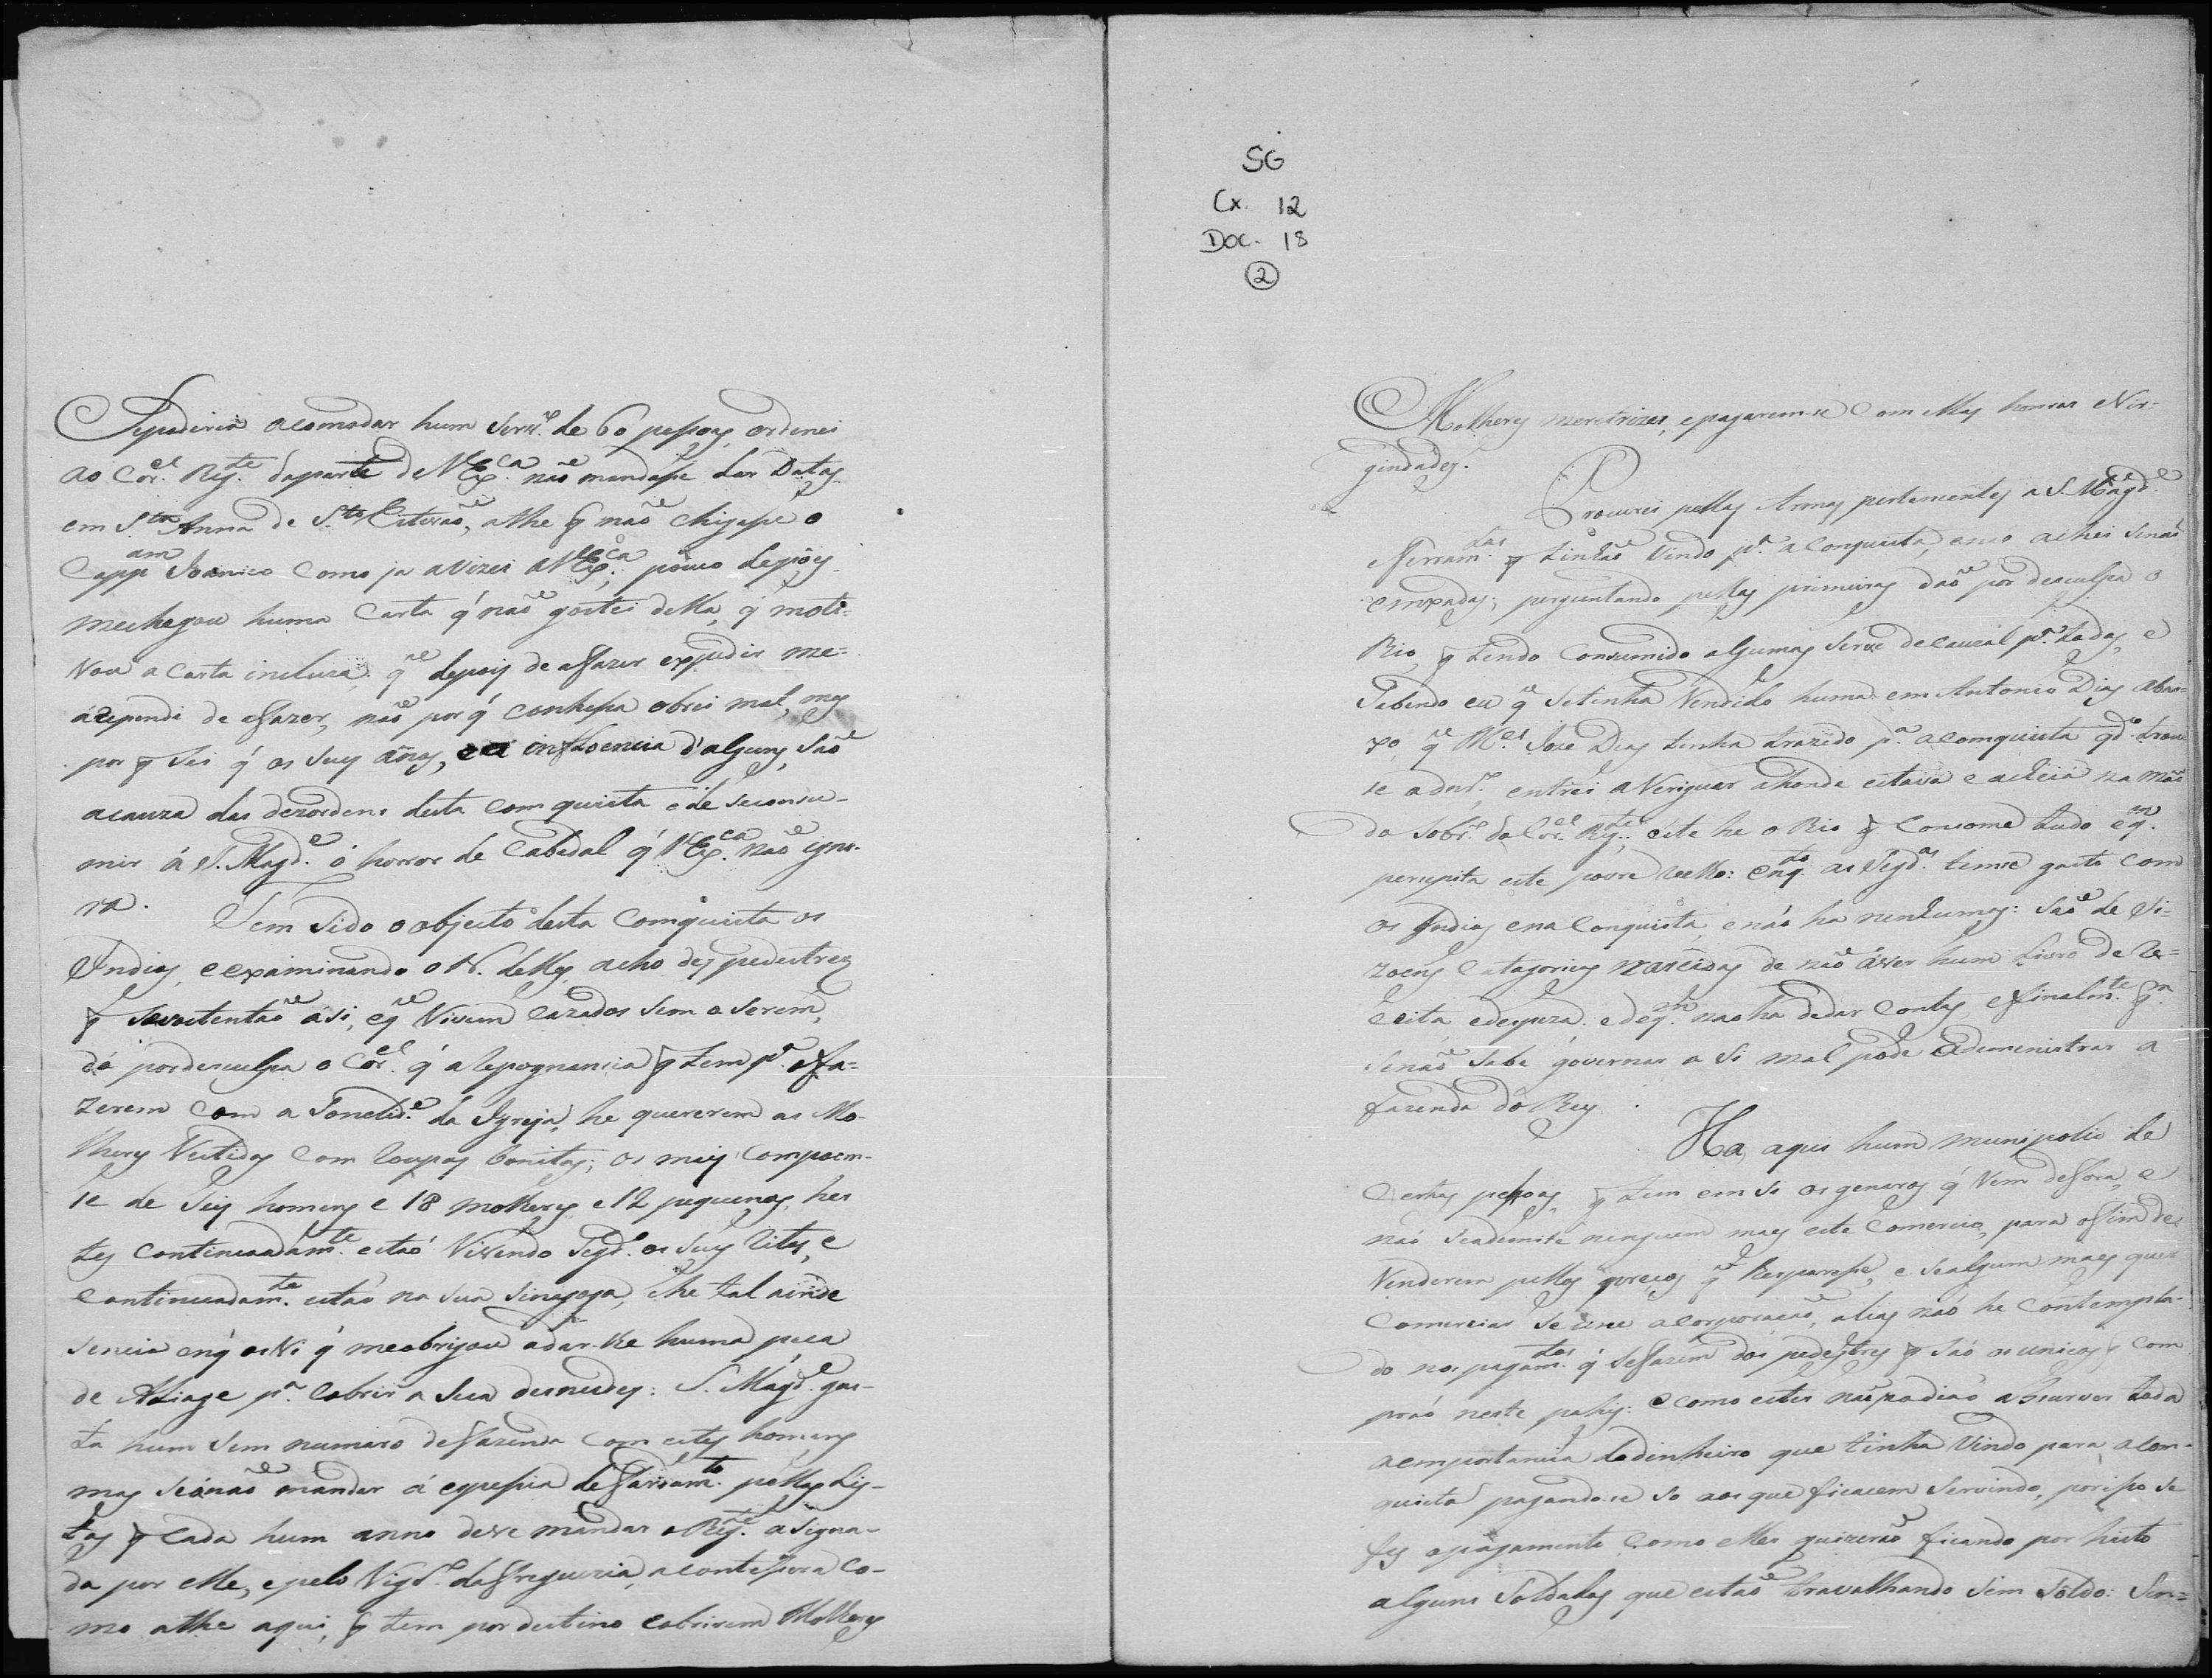 Sepoderia acomodar hum Serv.º de 60 pessoas, ordenei
ao Cor.el Reg.te daparte de VEx.ca não mandasse dar Datas
em S.ta Anna de S.to Estevão, athe q não chigasse o
Capp.am Joanico como ja avizei aVEx.ca, pouco depois
mechegou huma Carta q' não gostei della, q' moti-
vou a carta incluza, q depois de afazer expedir me=
arependi de afazer, não por q' conheça obrei mal, mas
por q sei q' os seus anos, e a influencia d'alguns, são
acauza das dezordens desta comquista e de seconsu-
mir á S. Magd.e o horror de Cabedal q' VEx.ca não igno-
ra.
Tem sido o objecto desta Comquista os
Indios, e examinando o N. delles, acho des pedestres
q sesostentão asi, e q Vivem cazados sem o serem,
dá pordesculpa o Cor.el q' a repognancia q tem p.a ofa=
zerem com a Sonelid.e da Igreja, he quererem as Mo-
lheres Vestidas com roupas bonitas; os mais compoem-
se de Seis homens e 18 molheres e 12 pequenos, hes
tes continuadam.te estaó Vivendo Segd.o os seus rites, e
continuadam.te estaõ na sua Sinagoga, e he tal ainde
sencia en q' os Vi q' meobrigou adar-lhe huma peca
de Aliage p.a Cobrir a sua desnudes: S. Magd.e gas-
ta hum sem numaro defazenda com estes homens
mas seánão mandar á espessia defardam.to pellas Lis-
tas q cada hum anno deve mandar o Reg.te asigna-
da por elle, e pelo Vigr.o dafreguezia, acontessera co-
mo athe aqui, q tem por destino cobrirem Molheres
SG
Cx. 12
Doc. 18
2
Molheres meretrizes, e pagarem-se Com ellas honras e Vir=
gindades.
Procurei pellas Armas pertencentes a S. Magd.e
e ferram.tas q tinhão Vindo p.a a Conquista, e não achei senaõ
emxadas; perguntando pellas primeiras daõ por desculpa o
Rio, q tendo Consumido algumas serve decauzal p.a todas, e
Sabendo eu q setinha Vendido huma em Antonio Dias abai=
xo, q M.el Joze Dias tinha trazido p.a acomquista qd.o trou
se adr.o, entrei aVeriguar ahonde estava e acheia na mão
do Sobr.o do Cor.el Reg.te; este he o Rio q Consome tudo e q.m
percipita este povre velho: e nq.to as Segd.as temse gasto com
os Indios e na Conquista, e não ha nenhumas: Saõ de Si-
zoens Catagoricas nascidas de não áver hum Livro de re=
ceita edespeza, e de q.m não ha dedar contas, e finalm.te q.m
senão Sabe governar a Si mal pode Adeministrar a
fazenda do Rey.
Ha, aqui hum munipolio de
Certas pessoas, q tem em si os generos q' Vem defora, e
não Seademite ninguem mais este Comercio, para ofim de
Venderem pellos precos q lhesparesse, e sealgum mais quer
comerciar Se une acorporação, alias não he Contempla-
do nos pagam.tos q' Sefazem dos pedestres q são os unicos q com
praó neste pahis: e como estes não podiaõ absurver toda
aemportancia dodinheiro que tinha Vindo para acom-
quista pagando-se so aos que ficacem Servindo, porisso se
fes opagamento como elles quizeraõ ficando por histo
alguns Soldados que estaõ travalhando sem Soldo: Sen=